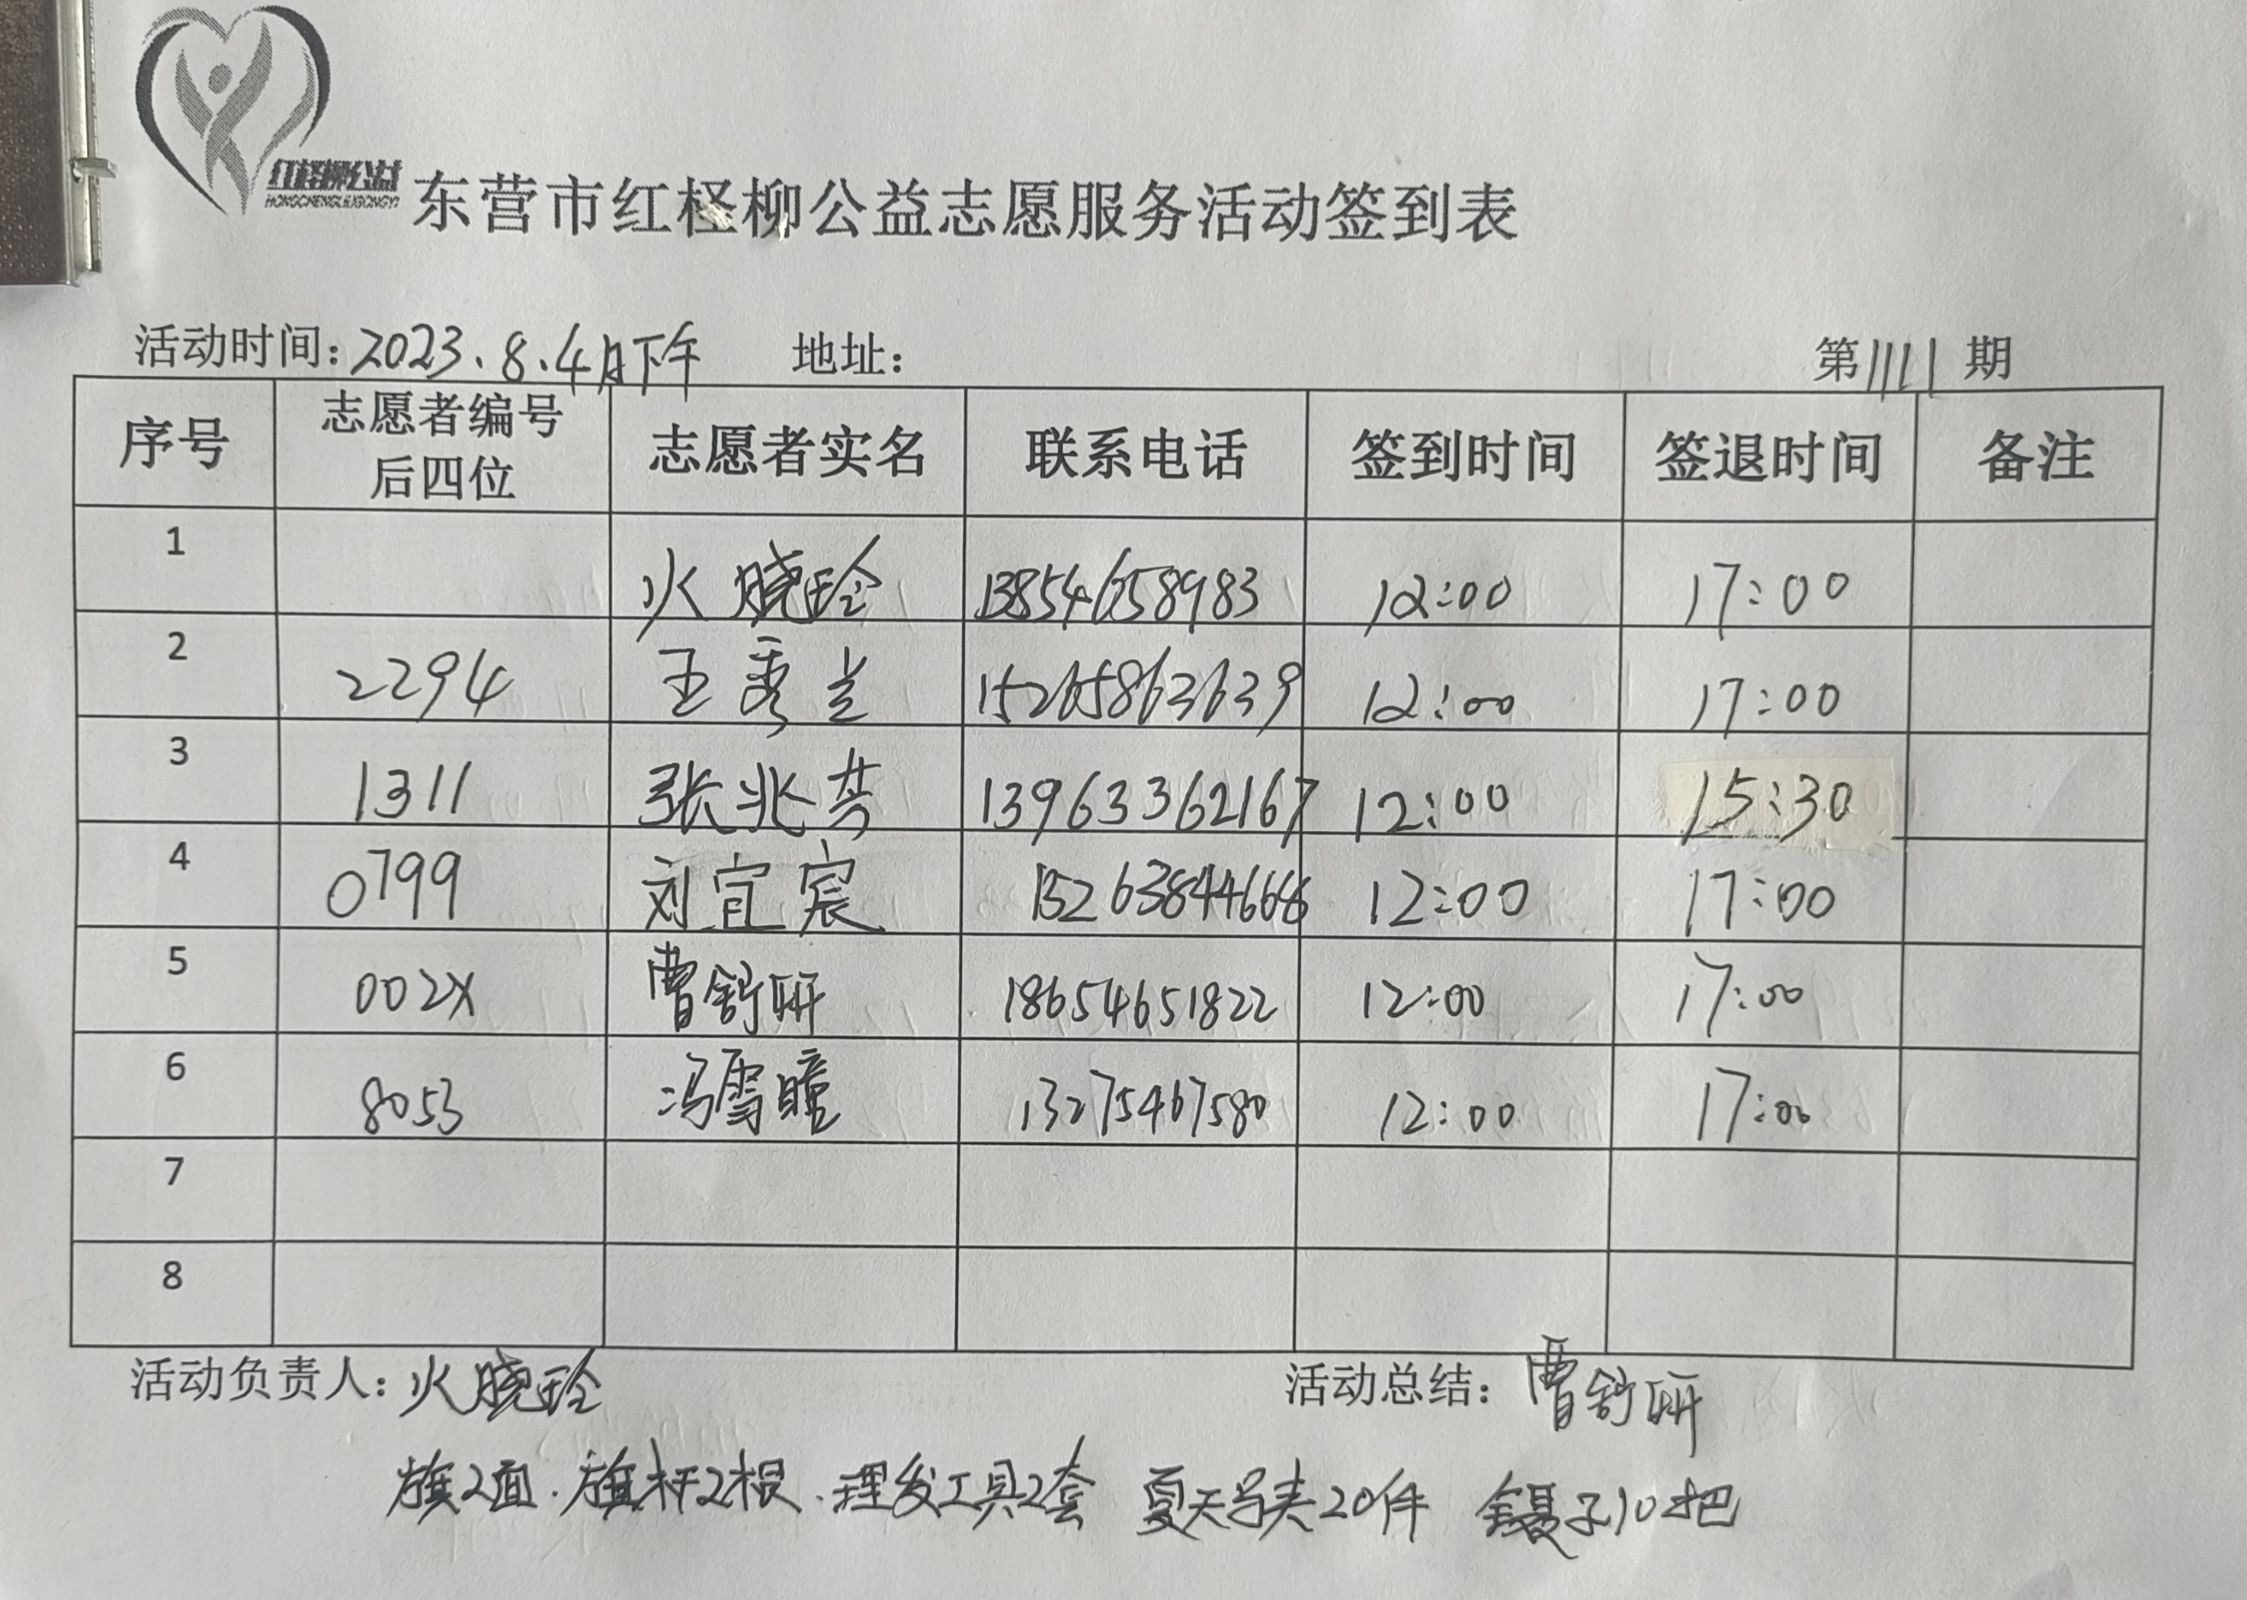 红柽柳公益
HONGCHENGLIUGONGYI
东营市红柽柳公益志愿服务活动签到表
活动时间：2023.8.4日下午 地址： 第1111期
序号 志愿者编号后四位 志愿者实名 联系电话 签到时间 签退时间 备注
1 火晓玲 13854658983 12:00 17:00
2 2294 王秀兰 15265863639 12:00 17:00
3 1311 张兆芬 13963362167 12:00 15:30
4 0799 刘宜宸 12:00 17:00
5 002X 曹舒研 18654651822 12:00 17:00
6 8053 冯雪瞳 13275467580 12:00 17:00
7
8
活动负责人：火晓玲 活动总结：曹舒研
旗2面.旗杆2根.理发工具2套 夏天马夹20件 镊子10把